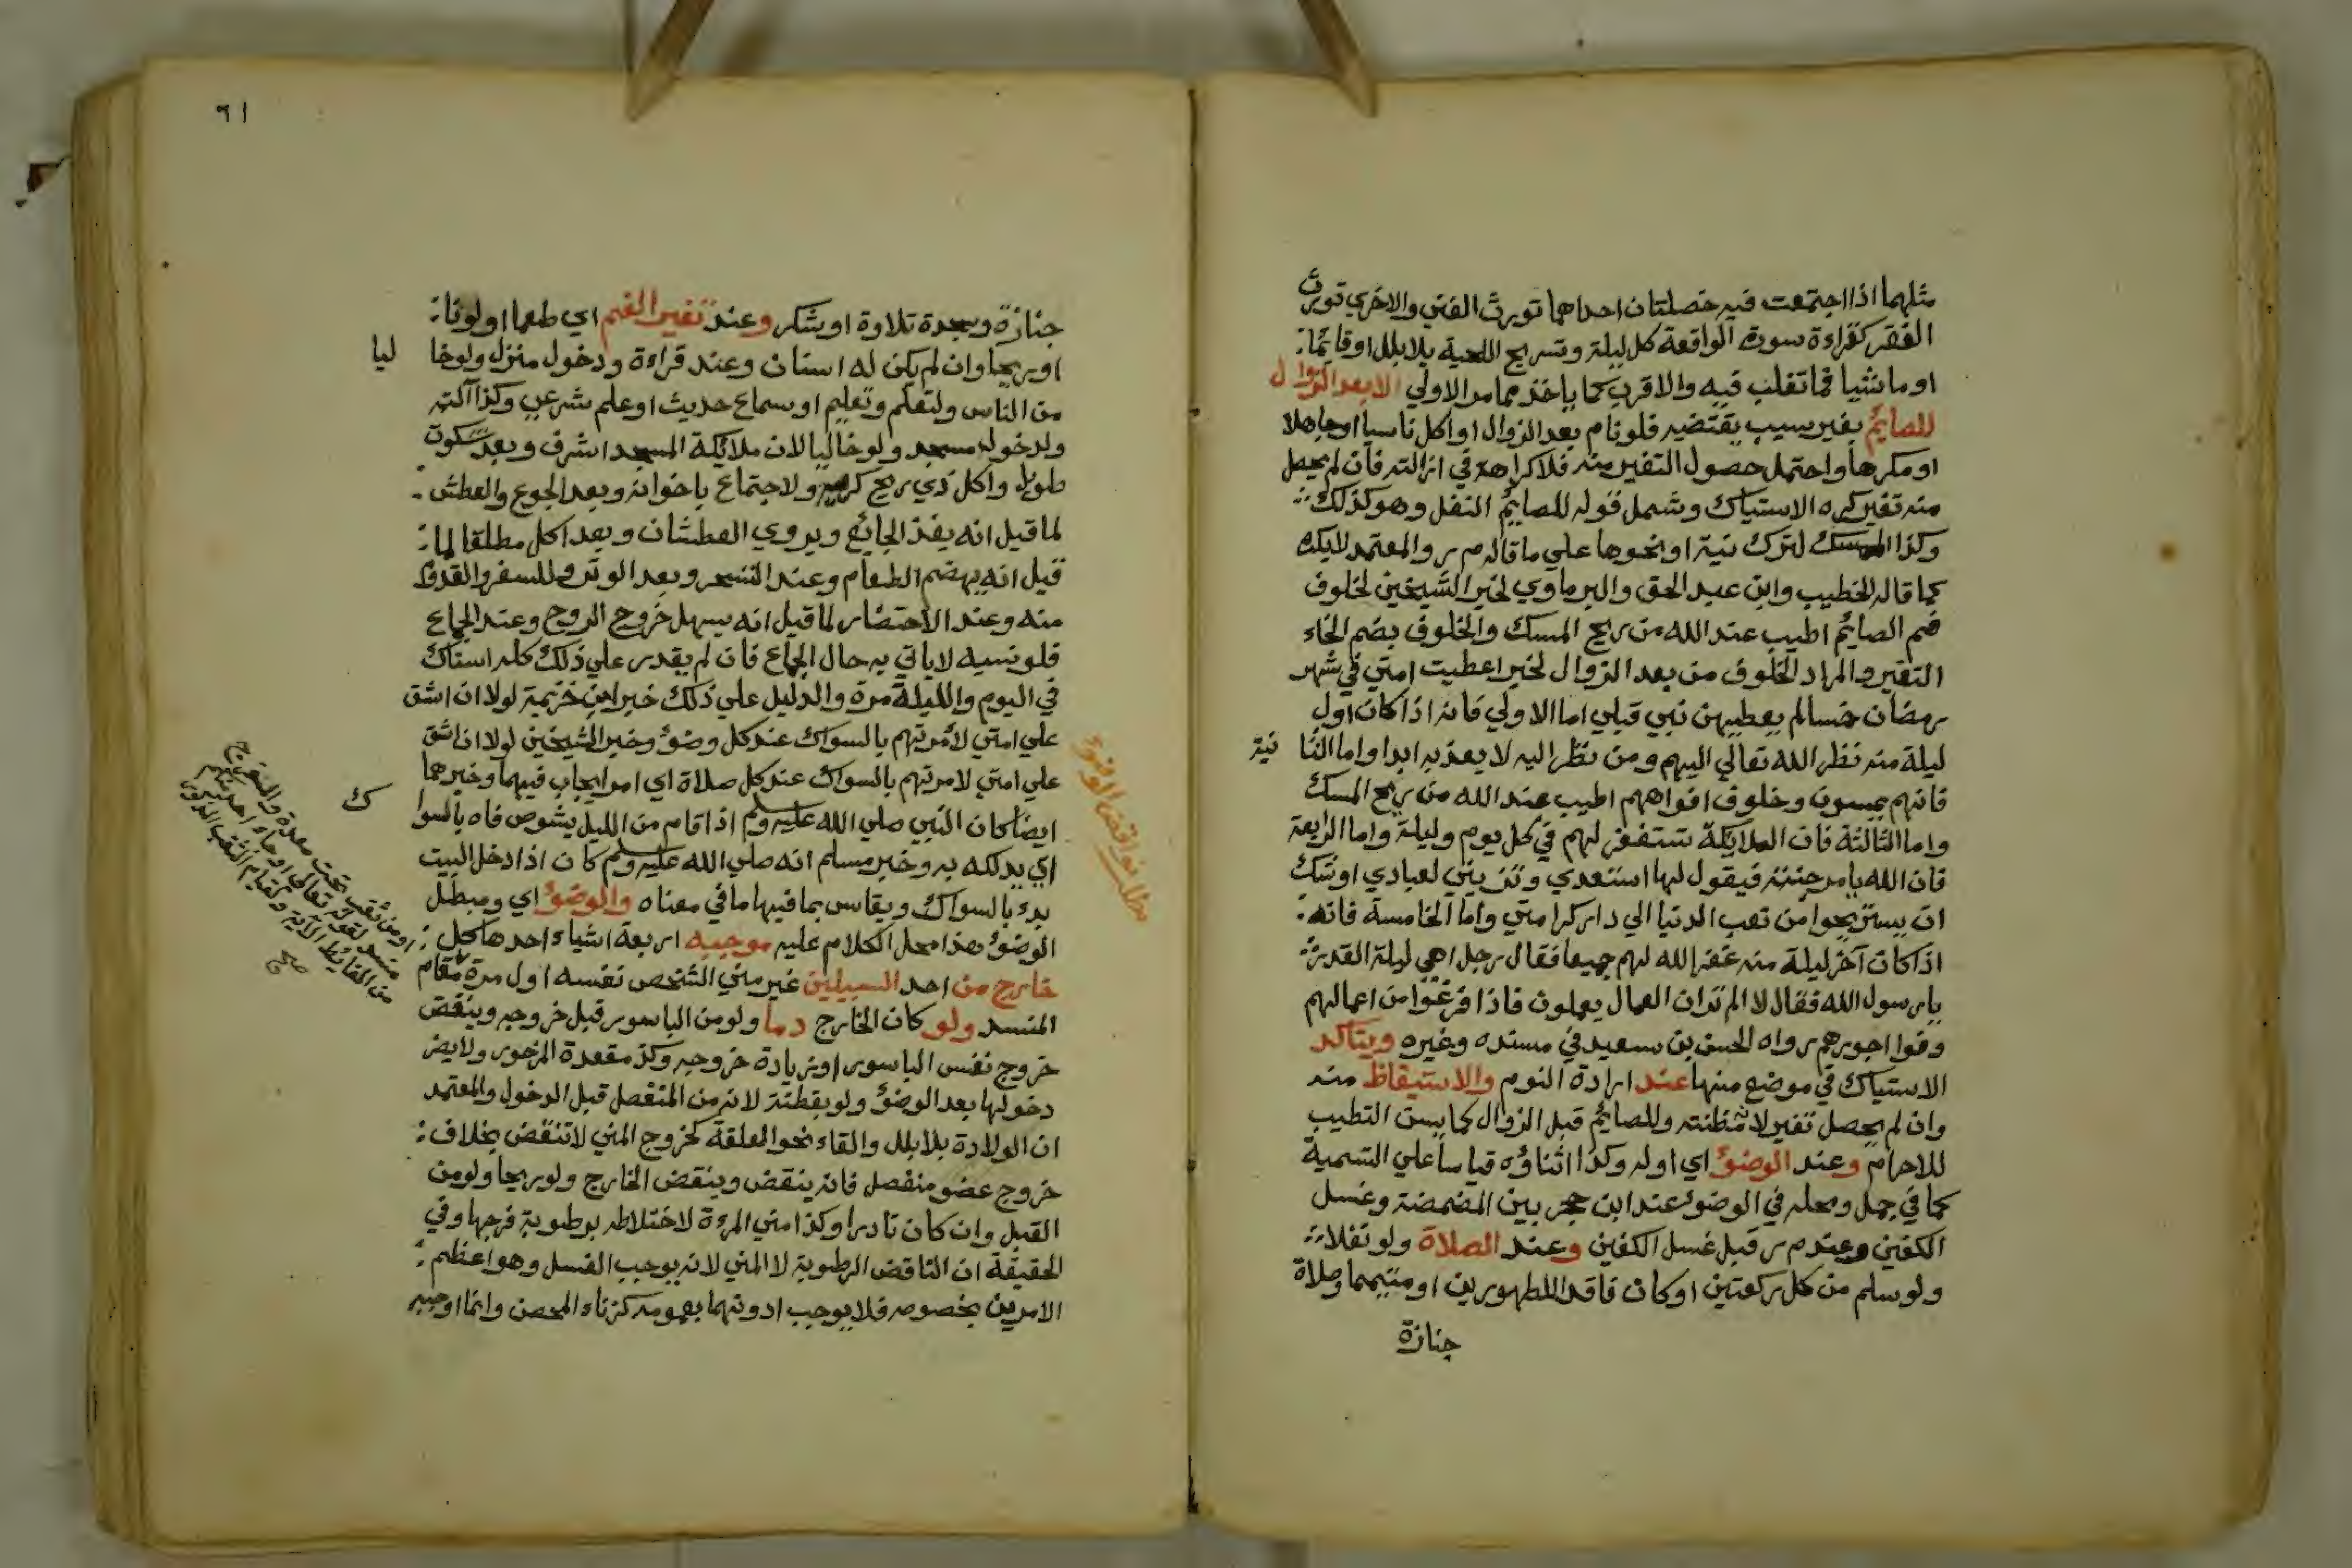 مثلهما اذا اجتمعت فيه خصلتان احداهما تورث الغني والاخري تورث
الفقر كقراءة سورة الواقعة كل ليلة وتسريح اللحية بلا بلل او قائما
او ماشيا فما تغلب فيه والاقرب كما ياخذ مما مر الاولي الا بعد الزوال
للصايم بغير سبب يقتضيه فلو نام بعد الزوال او اكل ناسيا او جاهلا
او مكرها واحتمل حصول التغير منه فلا كراهة في ازالته فان لم يحصل
منه تغير كره الاستياك وشمل قوله للصايم النفل وهو كذلك
وكذا الممسك لترك نية او نحوها علي ما قاله م ر والمعتمد لا يكره
كما قاله الخطيب وابن عبد الحق والبرماوي لخبر الشيخين لخلوف
فم الصايم اطيب عند الله من ريح المسك والخلوف بضم الخاء
التغير والمراد الخلوف من بعد الزوال لخبر اعطيت امتي في شهر
رمضان خمسا لم يعطيهن نبي قبلي اما الاولي فانه اذا كان اول
ليلة منه نظر الله تعالي اليهم ومن نظر اليه لا يعذبه ابدا واما الثا نية
فانهم يمسون وخلوف افواههم اطيب عند الله من ريح المسك
واما الثالثة فان الملايكة تستغفر لهم في كل يوم وليلة واما الرابعة
فان الله يامر جنته فيقول لها استعدي وتزيني لعبادي اوشك
ان يستريحوا من تعب الدنيا الي دار كرامتي واما الخامسة فانه
اذا كان آخر ليلة منه غفر الله لهم جميعا فقال رجل اهي ليلة القدر
يا رسول الله فقال لا الم تر ان العمال يعملون فاذا فرغوا من اعمالهم
وفوا اجورهم رواه الحسن بن سعيد في مسنده وغيره ويتاكد
الاستياك في موضع منها عند ارادة النوم والاستيقاظ منه
وان لم يحصل تغير لانه مظنته وللصايم قبل الزوال كما يسن التطيب
للاحرام وعند الوضوء اي اوله وكذا اثناؤه قياسا علي التسمية
كما في جمل ومحله في الوضوء عند ابن حجر بين المضمضة وغسل
الكفين وعند م ر قبل غسل الكفين وعند الصلاة ولو نفلا
ولو سلم من كل ركعتين او كان فاقد الطهورين او متيمما وصلاة
جنازة
٩١
جنازة وسجدة تلاوة او شكر وعند تغير الفم اي طعما او لونا
او ريحا وان لم يكن له اسنان وعند قراءة ودخول منزل ولو خا ليا
من الناس ولتعلم وتعليم او سماع حديث او علم شرعي وكذا آلته
ولدخوله مسجد ولو خاليا لان ملائكة المسجد اشرف وبعد سكوت
طويل واكل ذي ريح كريه ولاجتماع باخوانه وبعد الجوع والعطش
لما قيل انه يغذ الجائع ويروي العطشان وبعد اكل مطلقا لما
قيل انه يهضم الطعام وعند التسحر وبعد الوتر وللسفر والقدوم
منه وعند الاحتضار لما قيل انه يسهل خروج الروح وعند الجماع
فلو نسيه لا ياتي به حال الجماع فان لم يقدر علي ذلك كله استاك
في اليوم والليلة مرة والدليل علي ذلك خبر ابن خزيمة لولا ان اشق
علي امتي لأمرتهم بالسواك عند كل وضوء وخبر الشيخين لولا ان اشق
علي امتي لامرتهم بالسواك عند كل صلاة اي امر ايجاب فيهما وخبرهما
ايضا كان النبي صلي الله عليه وسلم اذا قام من الليل يشوص فاه بالسوا ك
اي يدلكه به وخبر مسلم انه صلي الله عليه وسلم كان اذا دخل البيت
بدء بالسواك ويقاس بما فيها ما في معناه والوضوء اي ومبطل
الوضوء هذا محل الكلام عليه موجبه اربعة اشياء احدها كل
خارج من احد السبيلين غير مني الشخص نفسه اول مرة مقام
المنسد ولو كان الخارج دما ولو من الباسور قبل خروجه وينقض
خروج نفس الباسور او زيادة خروجه وكذ مقعدة المزحور ولا يضر
دخولها بعد الوضوء ولو بقطنة لانه من المنفصل قبل الدخول والمعتمد
ان الولادة بلا بلل والقاء نحو العلقة كخروج المني لا تنقض بخلاف
خروج عضو منفصل فانه ينقض وينقض الخارج ولو ريحا ولو من
القبل وان كان نادرا وكذا مني المرءة لاختلاطه برطوبة فرجها وفي
الحقيقة ان الناقض الرطوبة لا المني لانه يوجب الغسل وهو اعظم
الامرين بخصوصه فلا يوجب ادونهما بعمومه كزناء المحصن وانما اوجبه
مطلب نواقض الوضوء
او من ثقب تحت معدة والمخرج
منسد لقوله تعالي او جاء احد منكم
من الغايط الآية ولقيام الثقب
صح